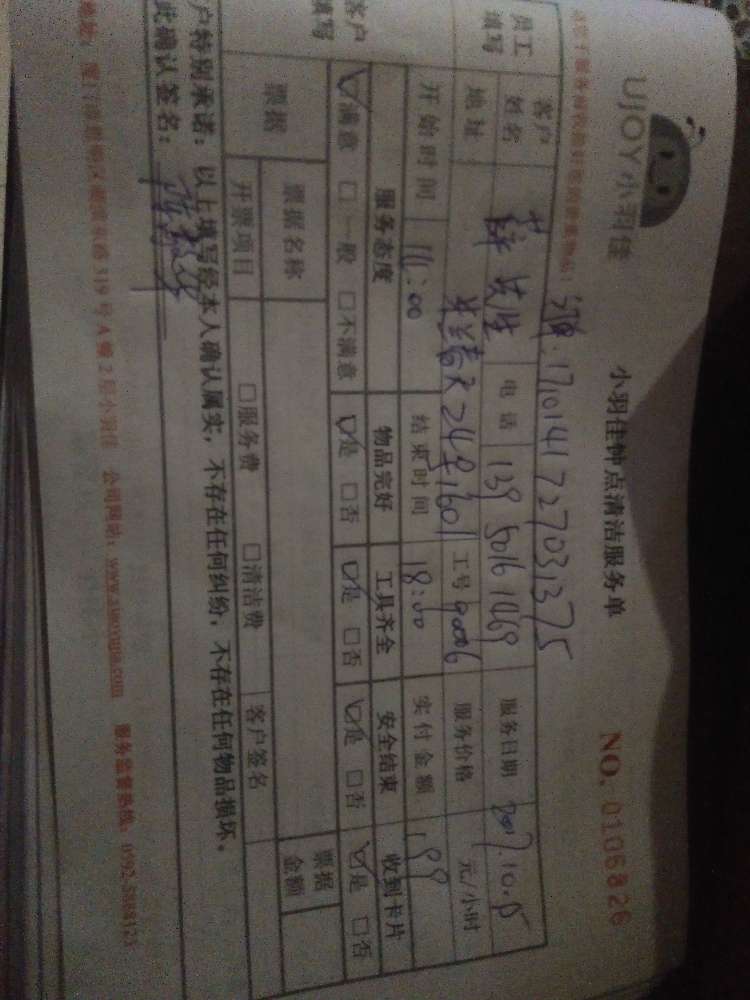 UJOY小羽佳
小羽佳钟点清洁服务单
NO. 0106826
17101417227031375
员工填写
客户姓名
薛先生
电话
139 5016 1469
服务日期
10.5
地址
24号1601
工号
90006
服务价格
元/小时
开始时间
14:00
结束时间
18:00
实付金额
199
客户填写
服务态度
物品完好
工具齐全
安全结束
收到卡片
☑满意 □一般 □不满意
☑是 □否
☑是 □否
☑是 □否
☑是 □否
票据
票据名称
票据金额
开票项目
□服务费 □清洁费
客户签名
户特别承诺：以上填写经本人确认属实，不存在任何纠纷，不存在任何物品损坏。
此确认签名：
319号A幢2层小羽佳 公司网站：www.xiaoyujia.com 服务监督热线：0592-5888123